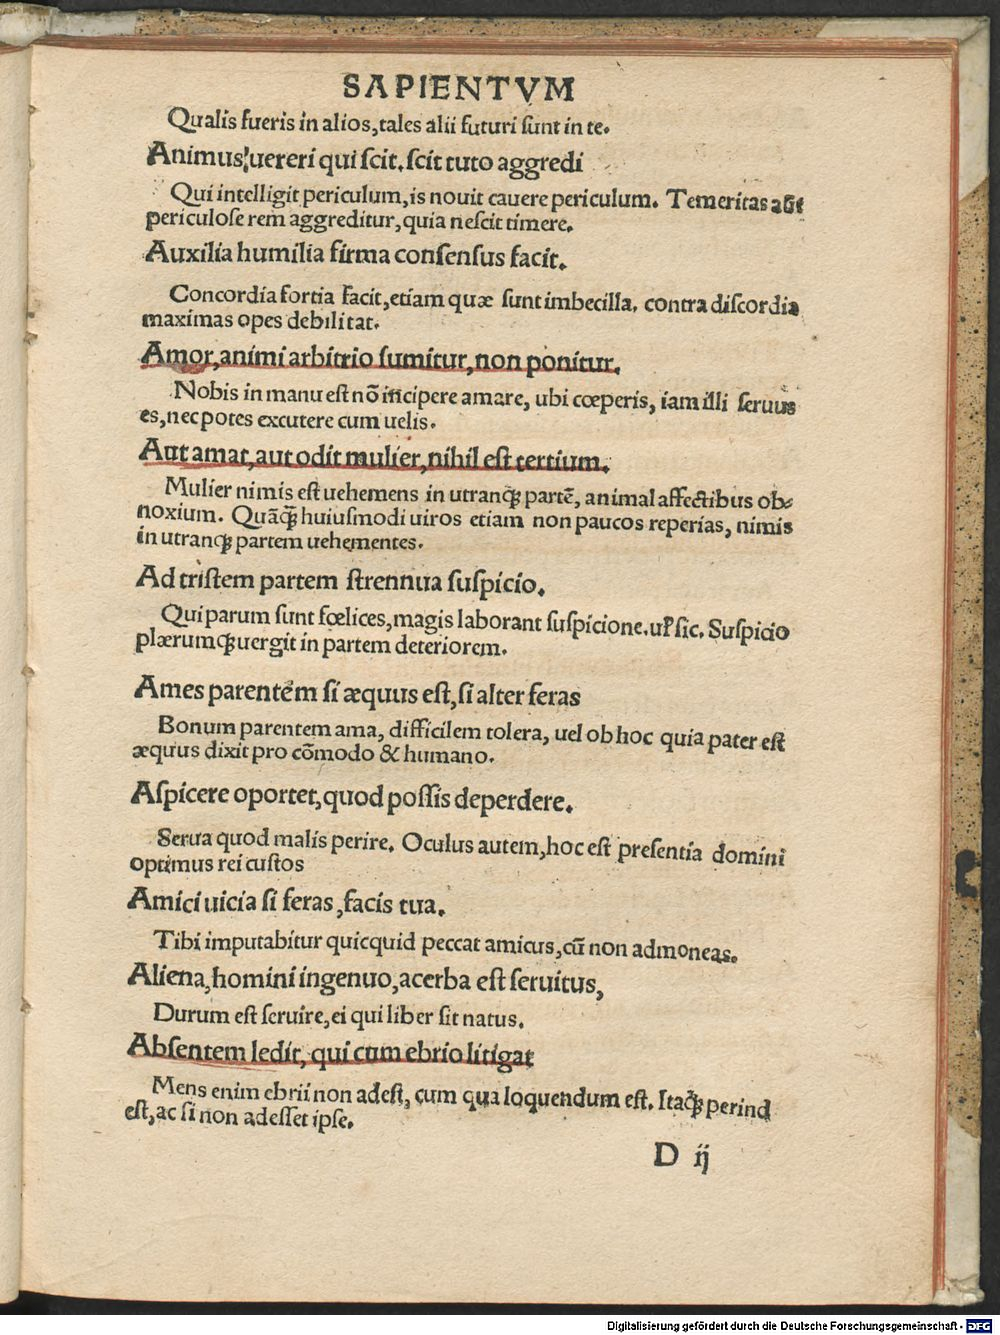 SAPIENTVM
Qualis fueris in alios, tales alii futuri sunt in te.
Animus uereri qui scit. scit tuto aggredi
Qui intelligit periculum, is nouit cauere periculum. Temeritas
periculose rem aggreditur, quia nescit timere.
Auxilia humilia firma consensus facit.
Concordia fortia facit, etiam quæ sunt imbecilla. contra discordia
maximas opes debilitat.
Amor, animi arbitrio sumitur, non ponitur.
Nobis in manu est nō incipere amare, ubi cœperis, iam illi seruus
es, nec potes excutere cum uelis.
Aut amat, aut odit mulier, nihil est tertium.
Mulier nimis est uehemens in utranqꝫ partē, animal affectibus ob-
noxium. Quāqꝫ huiusmodi uiros etiam non paucos reperias, nimis
in utranqꝫ partem uehementes.
Ad tristem partem strennua suspicio.
Qui parum sunt fœlices, magis laborant suspicione. sic. Suspicio
plærumqꝫ uergit in partem deteriorem.
Ames parentem si æquus est, si alter feras
Bonum parentem ama, difficilem tolera, uel ob hoc quia pater est
æquus dixit pro cōmodo & humano.
Aspicere oportet, quod possis deperdere.
Serua quod malis perire. Oculus autem, hoc est presentia domini
optimus rei custos
Amici uicia si feras, facis tua.
Tibi imputabitur quicquid peccat amicus, cū non admoneas.
Aliena, homini ingenuo, acerba est seruitus,
Durum est seruire, ei qui liber sit natus.
Absentem ledit, qui cum ebrio litigat
Mens enim ebrii non adest, cum qua loquendum est. Itaqꝫ perind
est, ac si non adesset ipse.
D ij
Digitalisierung gefördert durch die Deutsche Forschungsgemeinschaft - DFG